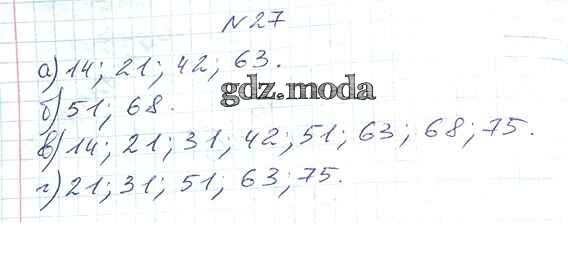 №27
а) 14; 21; 42; 63.
gdz.moda
б) 51; 68.
в) 14; 21; 31; 42; 51; 63; 68; 75.
г) 21; 31; 51; 63; 75.